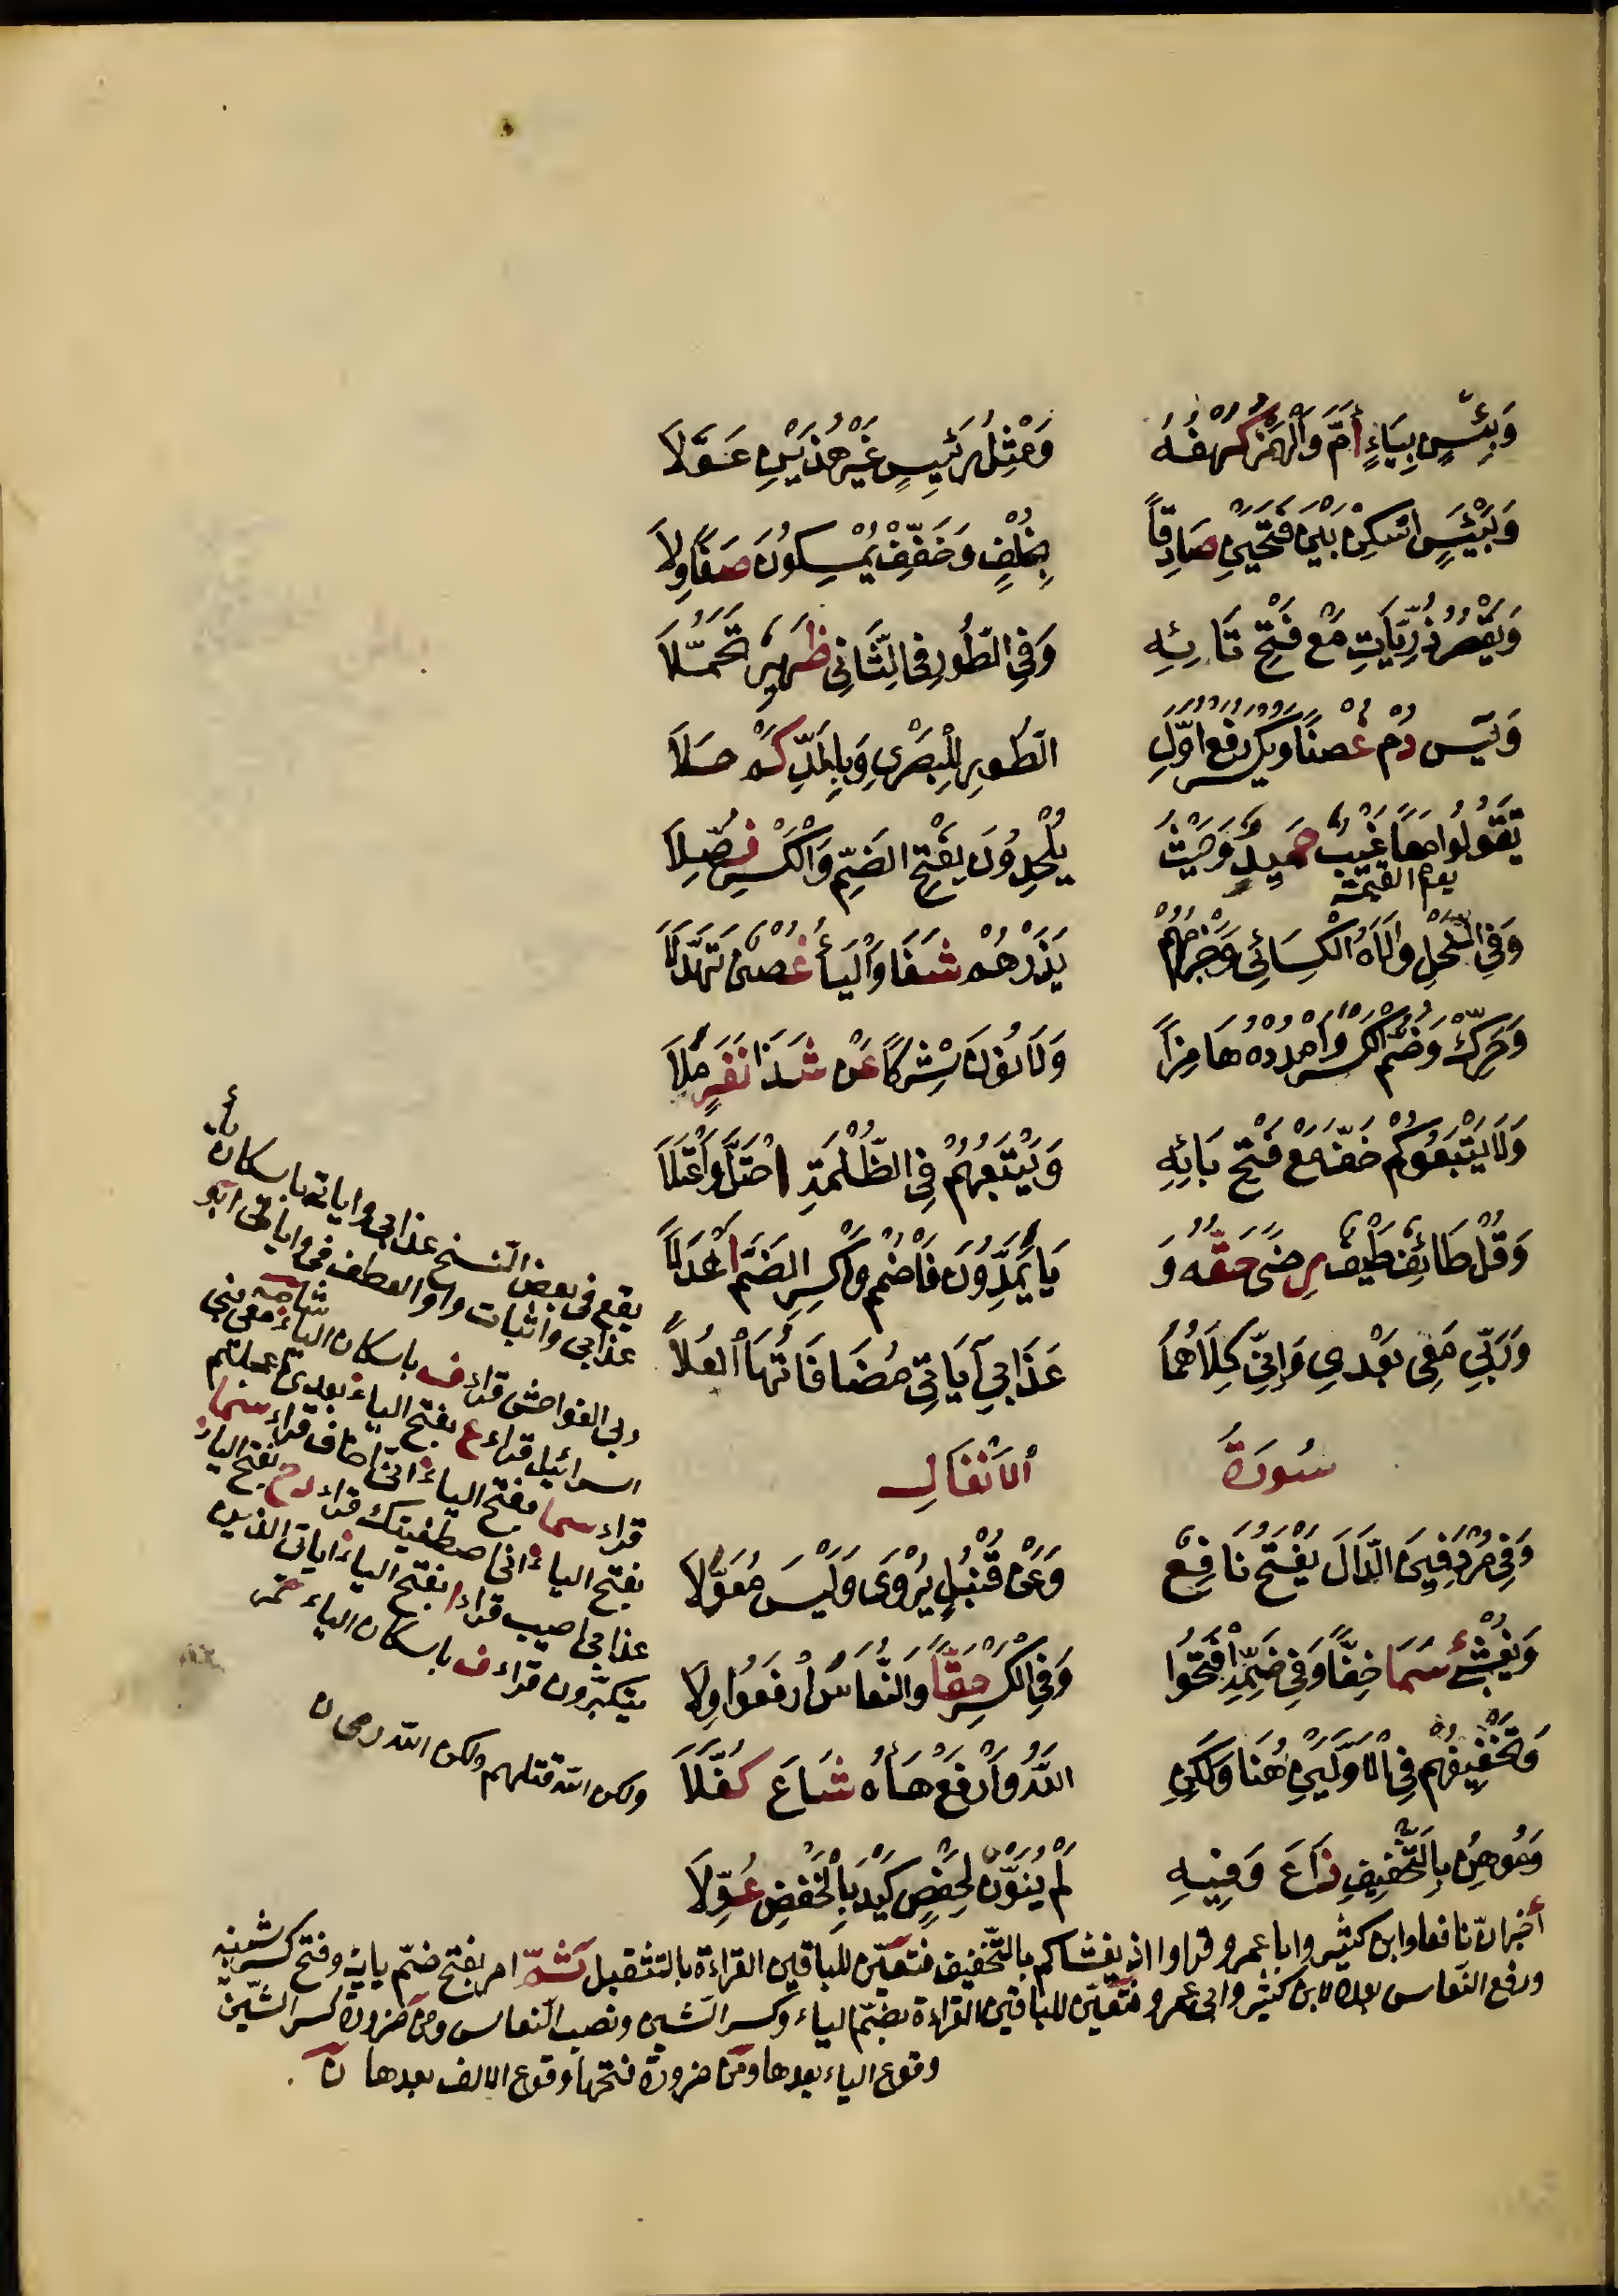 وَبِئْسٍ بِيَاءٍ أَمَّ وَالْهَمْزُ كَهْفُهُ وَمِثْلُ رَئِيسٍ غَيْرُ هٰذَيْنِ عَوَّلَا
وَبَيْئَسٍ اسْكِنْ بَيْنَ فَتْحَيْنِ صَادِقاً بِخُلْفٍ وَخَفِّفْ يُمْسِكُونَ صَفَا وِلَا
وَيَقْصُرُ ذُرِّيَاتِ مَعْ فَتْحِ تَائِهِ وَفِي الطُّورِ فِي الثَّانِي ظَهِيرٌ تَحَمَّلَا
وَيٰسَ دُمْ غُصْنًا وَيُكْسَرُ رَفْعُ اَوَّلِ الطُّورِ لِلْبَصْرِي وَبِالْمَدِّ كَمْ حَلَا
يَقُولُوا مَعًا غَيْبٌ حَمِيدٌ وَحَيْثُ يُلْحِدُونَ بِفَتْحِ الضَّمِّ وَالْكَسْرِ فُصِّلَا
يوم القيمة
وَفِي النَّحْلِ وَالَاهُ الْكِسَائِي وَجَزْمُهُمْ يَذَرْهُمْ شَفَا وَالْيَاءُ غُصْنٌ تَهَدَّلَا
وَحَرِّكْ وَضُمَّ الْكَسْرَ وَامْدُدْهُ هَامِزاً وَلَا نُونَ شِرْكًا عَنْ شَذَا نَفَرٍ مِلَا
وَلَا يَتْبَعُوكُمْ خَفَّ مَعْ فَتْحِ بَائِهِ وَيَتْبَعُهُمْ فِي الظُّلَّةِ احْتَلَّ وَاعْتَلَا
وَقُلْ طَائِفٌ طَيْفٌ رِضًى حَقُّهُ وَ يَا يَمُدُّونَ فَاضْمُمْ وَاكْسِرِ الضَّمَّ اَعْدَلَا
وَرَبِّي مَعِي بَعْدِي وَاِنِّي كِلَاهُمَا عَذَابِي آيَاتِي مُضَافَاتُهَا الْعُلَا
سُورَةُ الْاَنْفَالِ
وَفِي مُرْدِفِينَ الدَّالَ يَفْتَحُ نَافِعٌ وَعَنْ قُنْبُلٍ يُرْوَى وَلَيْسَ مُعَوَّلَا
وَيُغْشِي سَمَا خِفًّا وَفِي ضَمِّهِ افْتَحُوا وَفِي الْكَسْرِ حَقًّا وَالنُّعَاسَ ارْفَعُوا وِلَا
وَتَخْفِيفُهُمْ فِي الْاَوَّلَيْنِ هُنَا وَلَكِنِ اللّٰهُ وَارْفَعْ هَاءَهُ شَاعَ كُفَّلَا
وَمُوهِنُ بِالتَّخْفِيفِ ذَاعَ وَفِيهِ لَمْ يُنَوَّنْ لِحَفْصٍ كَيْدَ بِالْخَفْضِ عَوَّلَا
يقع فى بعض النسخ عذابى واياتى باسكان ياء
عذابى واثبات واو العطف فى واياتى
ربى الفواحش قراء ف باسكان الياء معى بنى
اسرائيل قراء ع بفتح الياء بعدى اعجلتم
قراء سما بفتح الياء انى اخاف قراء سما
بفتح الياء انى اصطفيتك قراء بفتح الياء
عذابى اصيب قراء ا بفتح الياء اياتى الذين
يتكبّرون قراء ف باسكان الياء
ولكن الله قتلهم ولكن الله رمى
أخبر انّ نافعا وابن كثير وابا عمرو قراوا اذ يغشاكم بالتّخفيف فتعيّن للباقين القراءة بالتثقيل ثمّ امر بفتح ضمّ يائه وفتح كسر شينه
ورفع النعاس بعده لابن كثير وابى عمرو فتعيّن للباقين القراءة بضمّ الياء وكسر الشين ونصب النعاس ومن ضرورة كسر الشين
وقوع الياء بعدها ومن ضرورة فتحها وقوع الالف بعدها